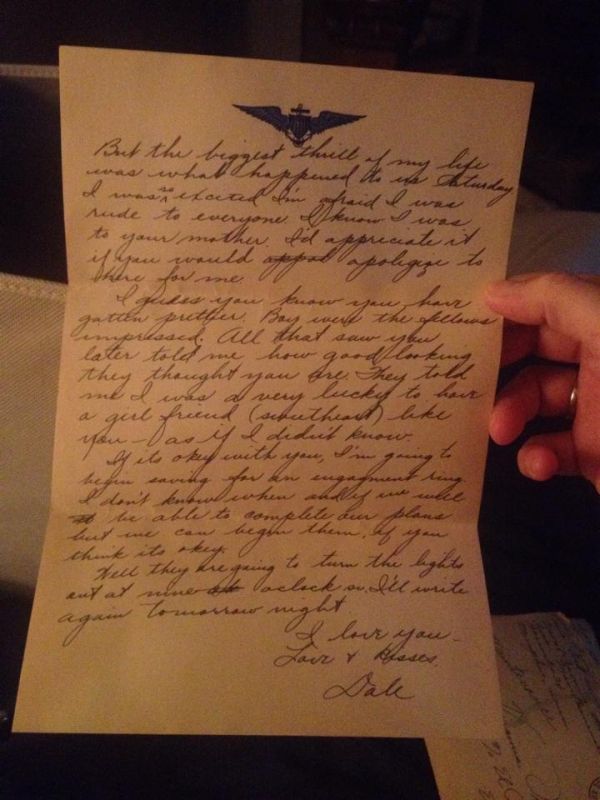 But the biggest thrill of my life
was what happened to us Saturday
I was so excited I'm afraid I was
rude to everyone. I know I was
to your mother. I'd appreciate it
if you would appol apologize to
here for me.
I guess you know you have
gotten prettier. Boy were the fellows
impressed. All that saw you
later told me how good looking
they thought you are. They told
me I was a very lucky to have
a girl friend (sweetheart) like
you - as if I didn't know.
If its okey with you, I'm going to
begin saving for an engagment ring
I don't know when and if we will
be able to complete our plans
but we can begin them, if you
think its okey.
Well they are going to turn the lights
out at nine oclock so I'll write
again tomorrow night.
I love you -
Love + Kisses,
Dale